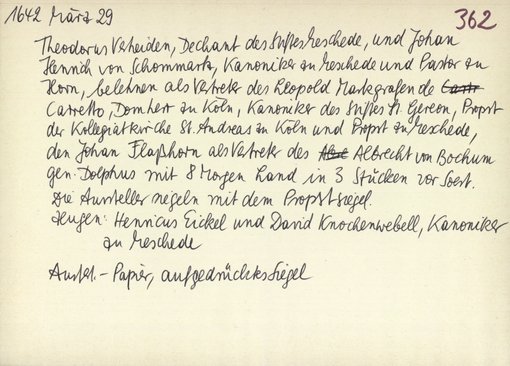 1642 März 29 362
Theodorus Verheiden, Dechant des Stiftes Meschede, und Johan
Henrich von Schommartz, Kanoniker zu Meschede und Pastor zu
Horn, belehnen als Vertreter des Leopold Markgrafen de Carr
Carretto, Domherr zu Köln, Kanoniker des Stiftes St. Gereon, Propst
der Kollegiatkirche St. Andreas zu Köln und Propst zu Meschede,
den Johan Flaßhorn als Vertreter des Albrecht von Bochum
gen. Dolphus mit 8 Morgen Land in 3 Stücken vor Soest.
Die Aussteller siegeln mit dem Propstsiegel.
Zeugen: Henricus Eickel und David Knochenwebell, Kanoniker
zu Meschede
Ausf. - Papier, aufgedrücktes Siegel